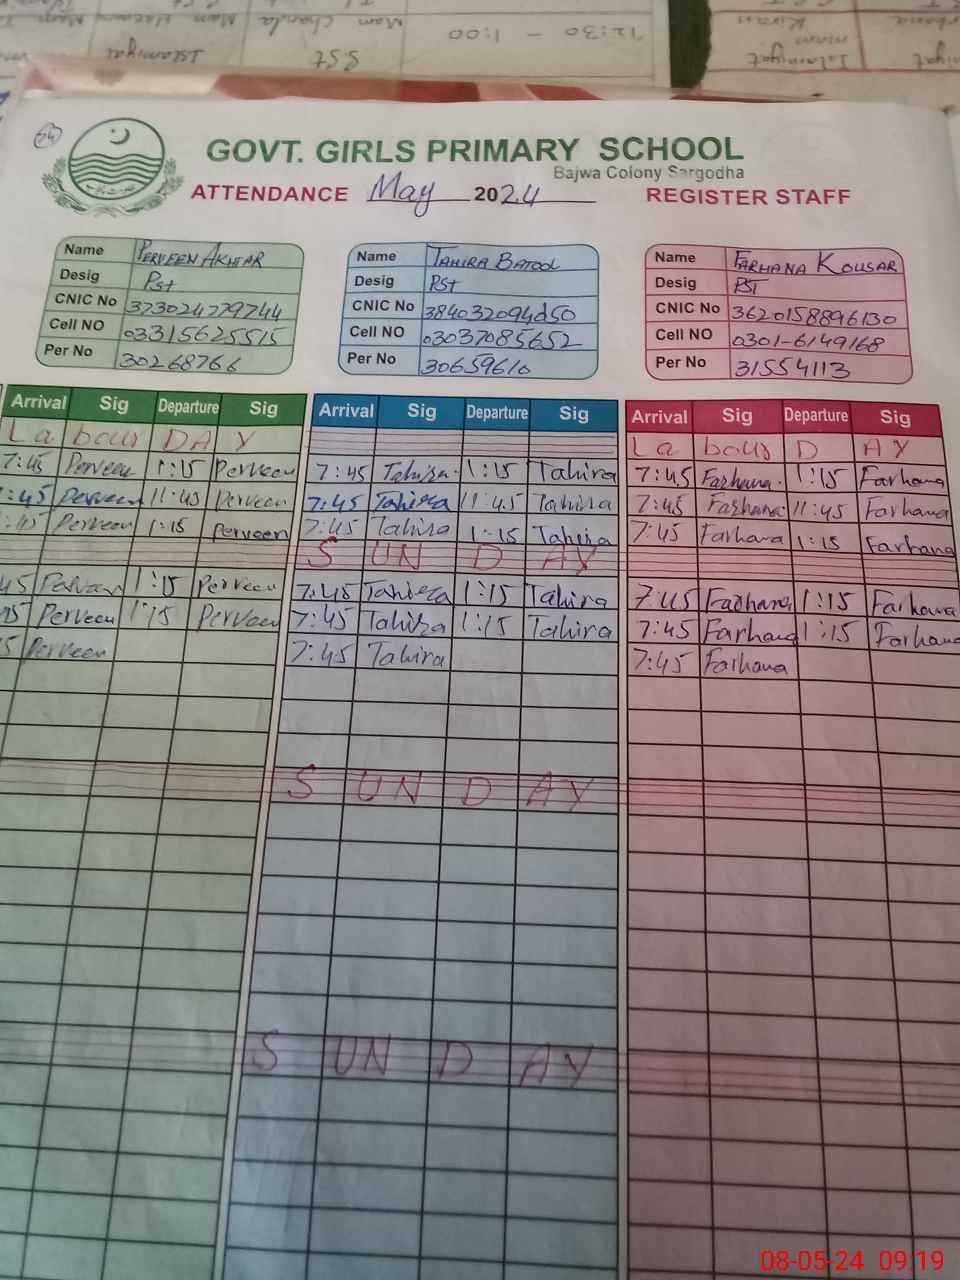 12:30 - 1:00
Mam Chanda
S.St
Islamiyat
Kiran
mam
Islamiyat
24
GOVT. GIRLS PRIMARY SCHOOL
Bajwa Colony Sargodha
ATTENDANCE May 2024 REGISTER STAFF
Name PERVEEN AKHTAR Name TAHIRA BATOOL Name FARHANA KOUSAR
Desig Pst Desig PSt Desig PST
CNIC No 3730247797744 CNIC No 384032094250 CNIC No 3620158896130
Cell NO 03315625515 Cell NO 03037085652 Cell NO 0301-6149168
Per No 30268766 Per No 30659610 Per No 31554113
Arrival Sig Departure Sig Arrival Sig Departure Sig Arrival Sig Departure Sig
La bour DA Y La bour D AY
7:45 Perveen 1:15 Perveen 7:45 Tahira 1:15 Tahira 7:45 Farhana 1:15 Farhana
7:45 Perveen 11:45 Perveen 7:45 Tahira 11:45 Tahira 7:45 Farhana 11:45 Farhana
:45 Perveen 1:15 Perveen 7:45 Tahira 1:15 Tahira 7:45 Farhana 1:15 Farhana
S UN D AY
45 Perveen 1:15 Perveen 7:45 Tahira 1:15 Tahira 7:45 Farhana 1:15 Farhana
45 Perveen 1:15 Perveen 7:45 Tahira 1:15 Tahira 7:45 Farhana 1:15 Farhana
5 Perveen 7:45 Tahira 7:45 Farhana
S UN D AY
S UN D AY
08-05-24 09:19